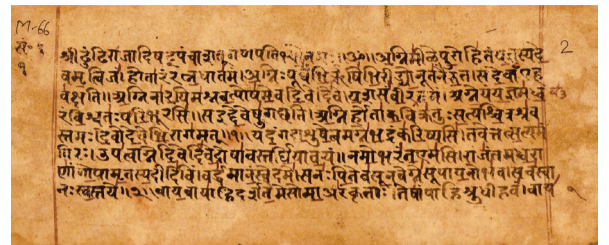 M-66
2
सं॰ ६
१
श्रीढुंढिराजादिषट्पंचाशत् गणपतिभ्यो नमः॥ॐ॥अग्निमीळे पुरोहितं यज्ञस्य दे
वमृत्विजं। होतारं रत्नधातमं॥ अग्निः पूर्वेभिर्ऋषिभिरीड्यो नूतनैरुत। स देवाँ एह
वक्षति॥ अग्निना रयिमश्नवत्पोषमेव दिवेदिवे। यशसं वीरवत्तमं। अग्ने यं यज्ञमध्व
रं विश्वतः परिभूरसि। स इद्देवेषु गच्छति॥ अग्निर्होता कविक्रतुः सत्यश्चित्रश्रव
स्तमः। देवो देवेभिरागमत्॥१॥ यदंग दाशुषे त्वमग्ने भद्रं करिष्यसि। तवेत्तत्सत्यमं
गिरः। उप त्वाग्ने दिवेदिवे दोषावस्तर्धिया वयं॥ नमो भरंत एमसि। राजंतमध्वरा
णां गोपामृतस्य दीदिविं। वर्धमानं स्वे दमे। स नः पितेव सूनवेग्ने सूपायनो भव। सचस्वा
नः स्वस्तये॥२॥ वायवायाहि दर्शतेमे सोमा अरंकृताः। तेषां पाहि श्रुधी हवं। वाय
१